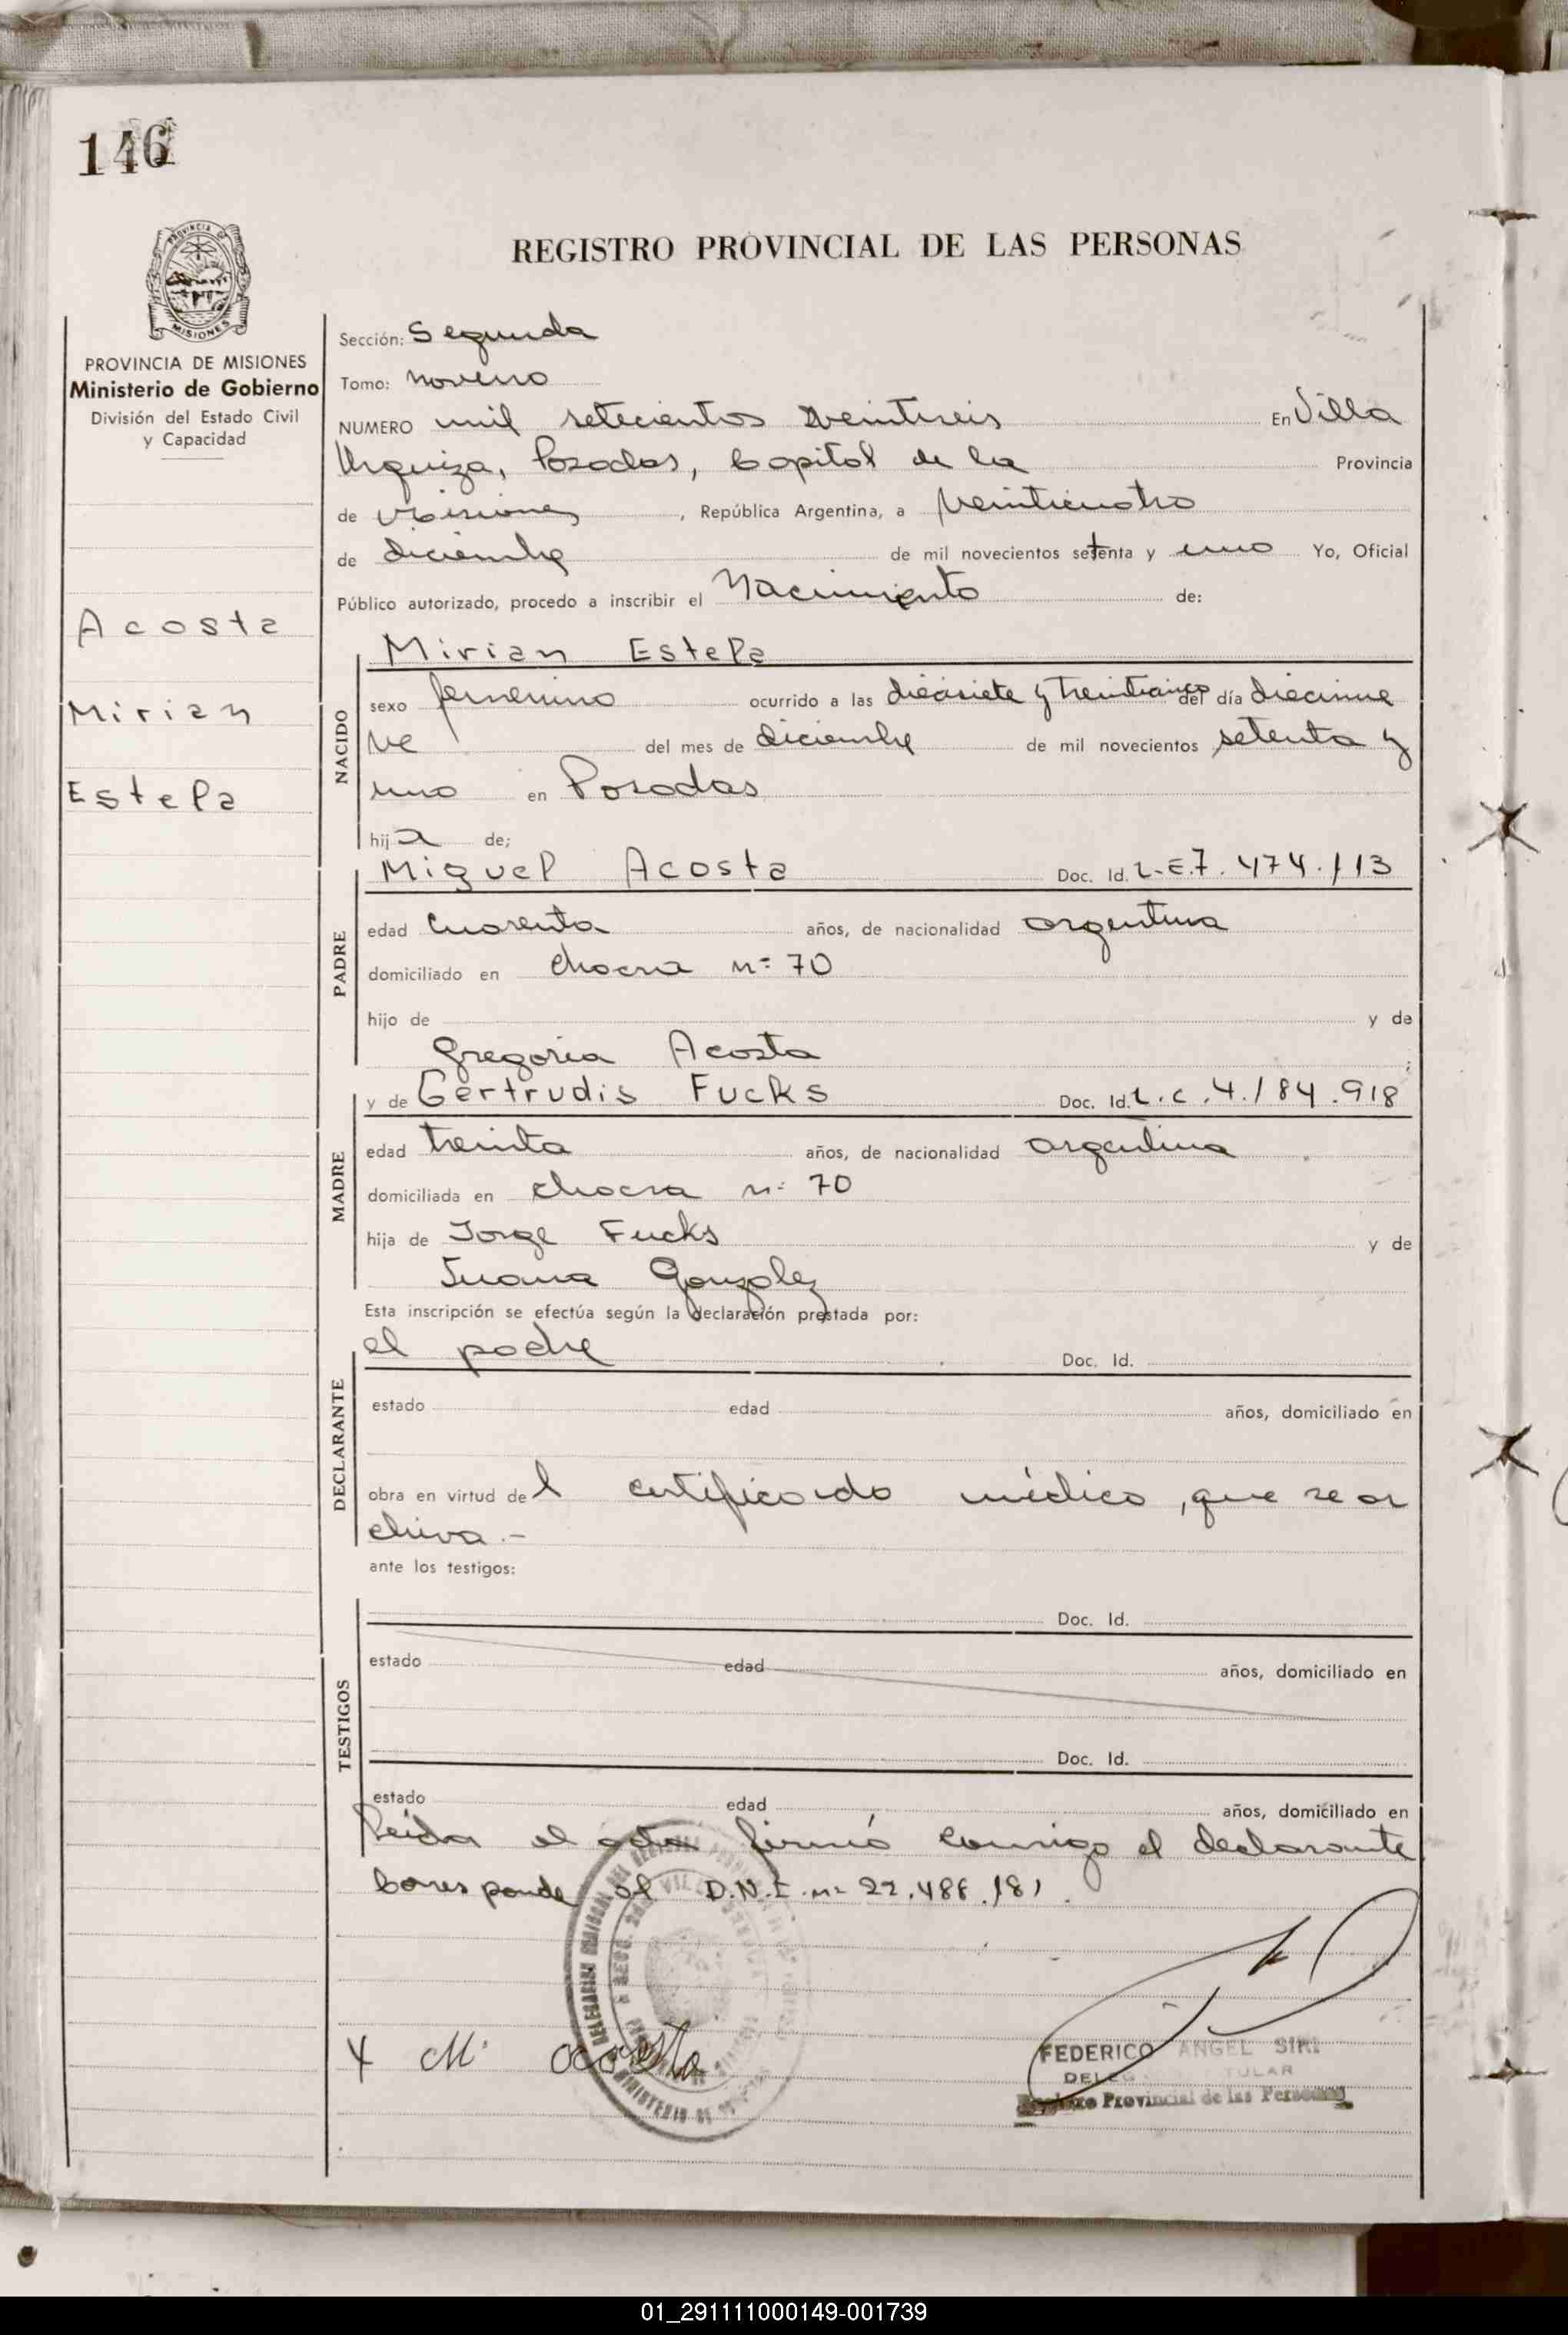 146
REGISTRO PROVINCIAL DE LAS PERSONAS
MISIONES
PROVINCIA DE MISIONES
Ministerio de Gobierno
División del Estado Civil
y Capacidad
Acosta
Mirian
Estela
Sección: Segunda
Tomo: noveno
NUMERO mil setecientos veintiseis En Villa
Urquiza, Posadas, Capital de la Provincia
de Misiones, República Argentina, a veinticuatro
de diciembre de mil novecientos setenta y uno Yo, Oficial
Público autorizado, procedo a inscribir el Nacimiento de:
NACIDO
Mirian Estela
sexo femenino ocurrido a las diecisiete y treinticinco del día diecinue
ve del mes de diciembre de mil novecientos setenta y
uno en Posadas
hija de;
PADRE
Miguel Acosta Doc. Id. L.E.7.474.113
edad cuarenta años, de nacionalidad argentina
domiciliado en chacra n= 70
hijo de y de
Gregoria Acosta
MADRE
y de Gertrudis Fucks Doc. Id. L.C.4.184.918
edad treinta años, de nacionalidad argentina
domiciliada en chacra n= 70
hija de Jorge Fucks y de
Juana Gonzalez
Esta inscripción se efectúa según la declaración prestada por:
DECLARANTE
el padre Doc. Id.
estado edad años, domiciliado en
obra en virtud del certificado médico, que se ar
chiva.-
ante los testigos:
TESTIGOS
Doc. Id.
estado edad años, domiciliado en
Doc. Id.
estado edad años, domiciliado en
Leida el acta firmó conmigo el declarante
Corresponde al D.N.I. n= 22.488.181.
X M. acosta
FEDERICO ANGEL SIRI
Provincial de las Personas
01_291111000149-001739